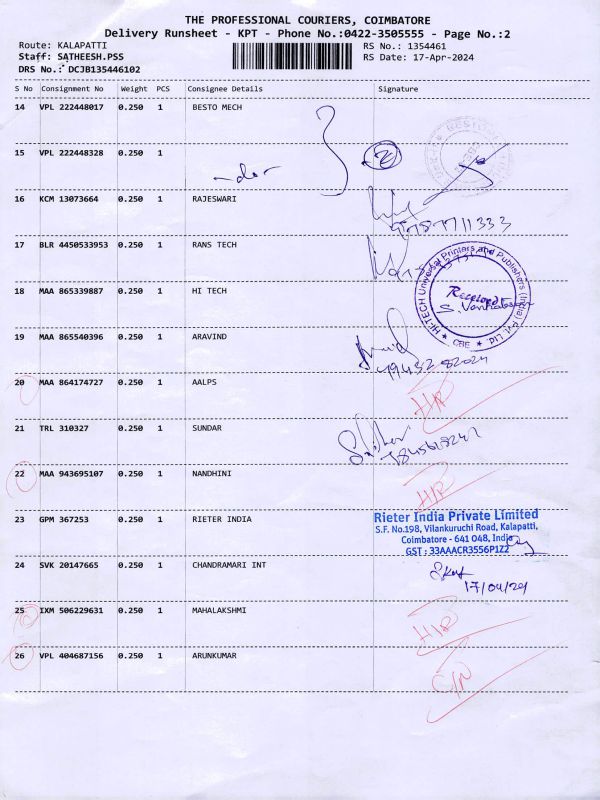 THE PROFESSIONAL COURIERS, COIMBATORE
Delivery Runsheet - KPT - Phone No.:0422-3505555 - Page No.:2
Route: KALAPATTI
RS No.: 1354461
Staff: SATHEESH.PSS
RS Date: 17-Apr-2024
DRS No.: DCJB135446102
S No Consignment No Weight PCS Consignee Details Signature
14 VPL 222448017 0.250 1 BESTO MECH
15 VPL 222448328 0.250 1
-do-
16 KCM 13073664 0.250 1 RAJESWARI
17 BLR 4450533953 0.250 1 RANS TECH
18 MAA 865339887 0.250 1 HI TECH
HI-TECH Universal Printers and Publishers (India) Pvt. Ltd. ★ CBE ★
Received
19 MAA 865540396 0.250 1 ARAVIND
20 MAA 864174727 0.250 1 AALPS
21 TRL 310327 0.250 1 SUNDAR
22 MAA 943695107 0.250 1 NANDHINI
23 GPM 367253 0.250 1 RIETER INDIA
Rieter India Private Limited
S.F. No.198, Vilankuruchi Road, Kalapatti,
Coimbatore - 641 048, India
GST : 33AAACR3556P1Z2
24 SVK 20147665 0.250 1 CHANDRAMARI INT
17/04/24
25 IXM 506229631 0.250 1 MAHALAKSHMI
26 VPL 404687156 0.250 1 ARUNKUMAR